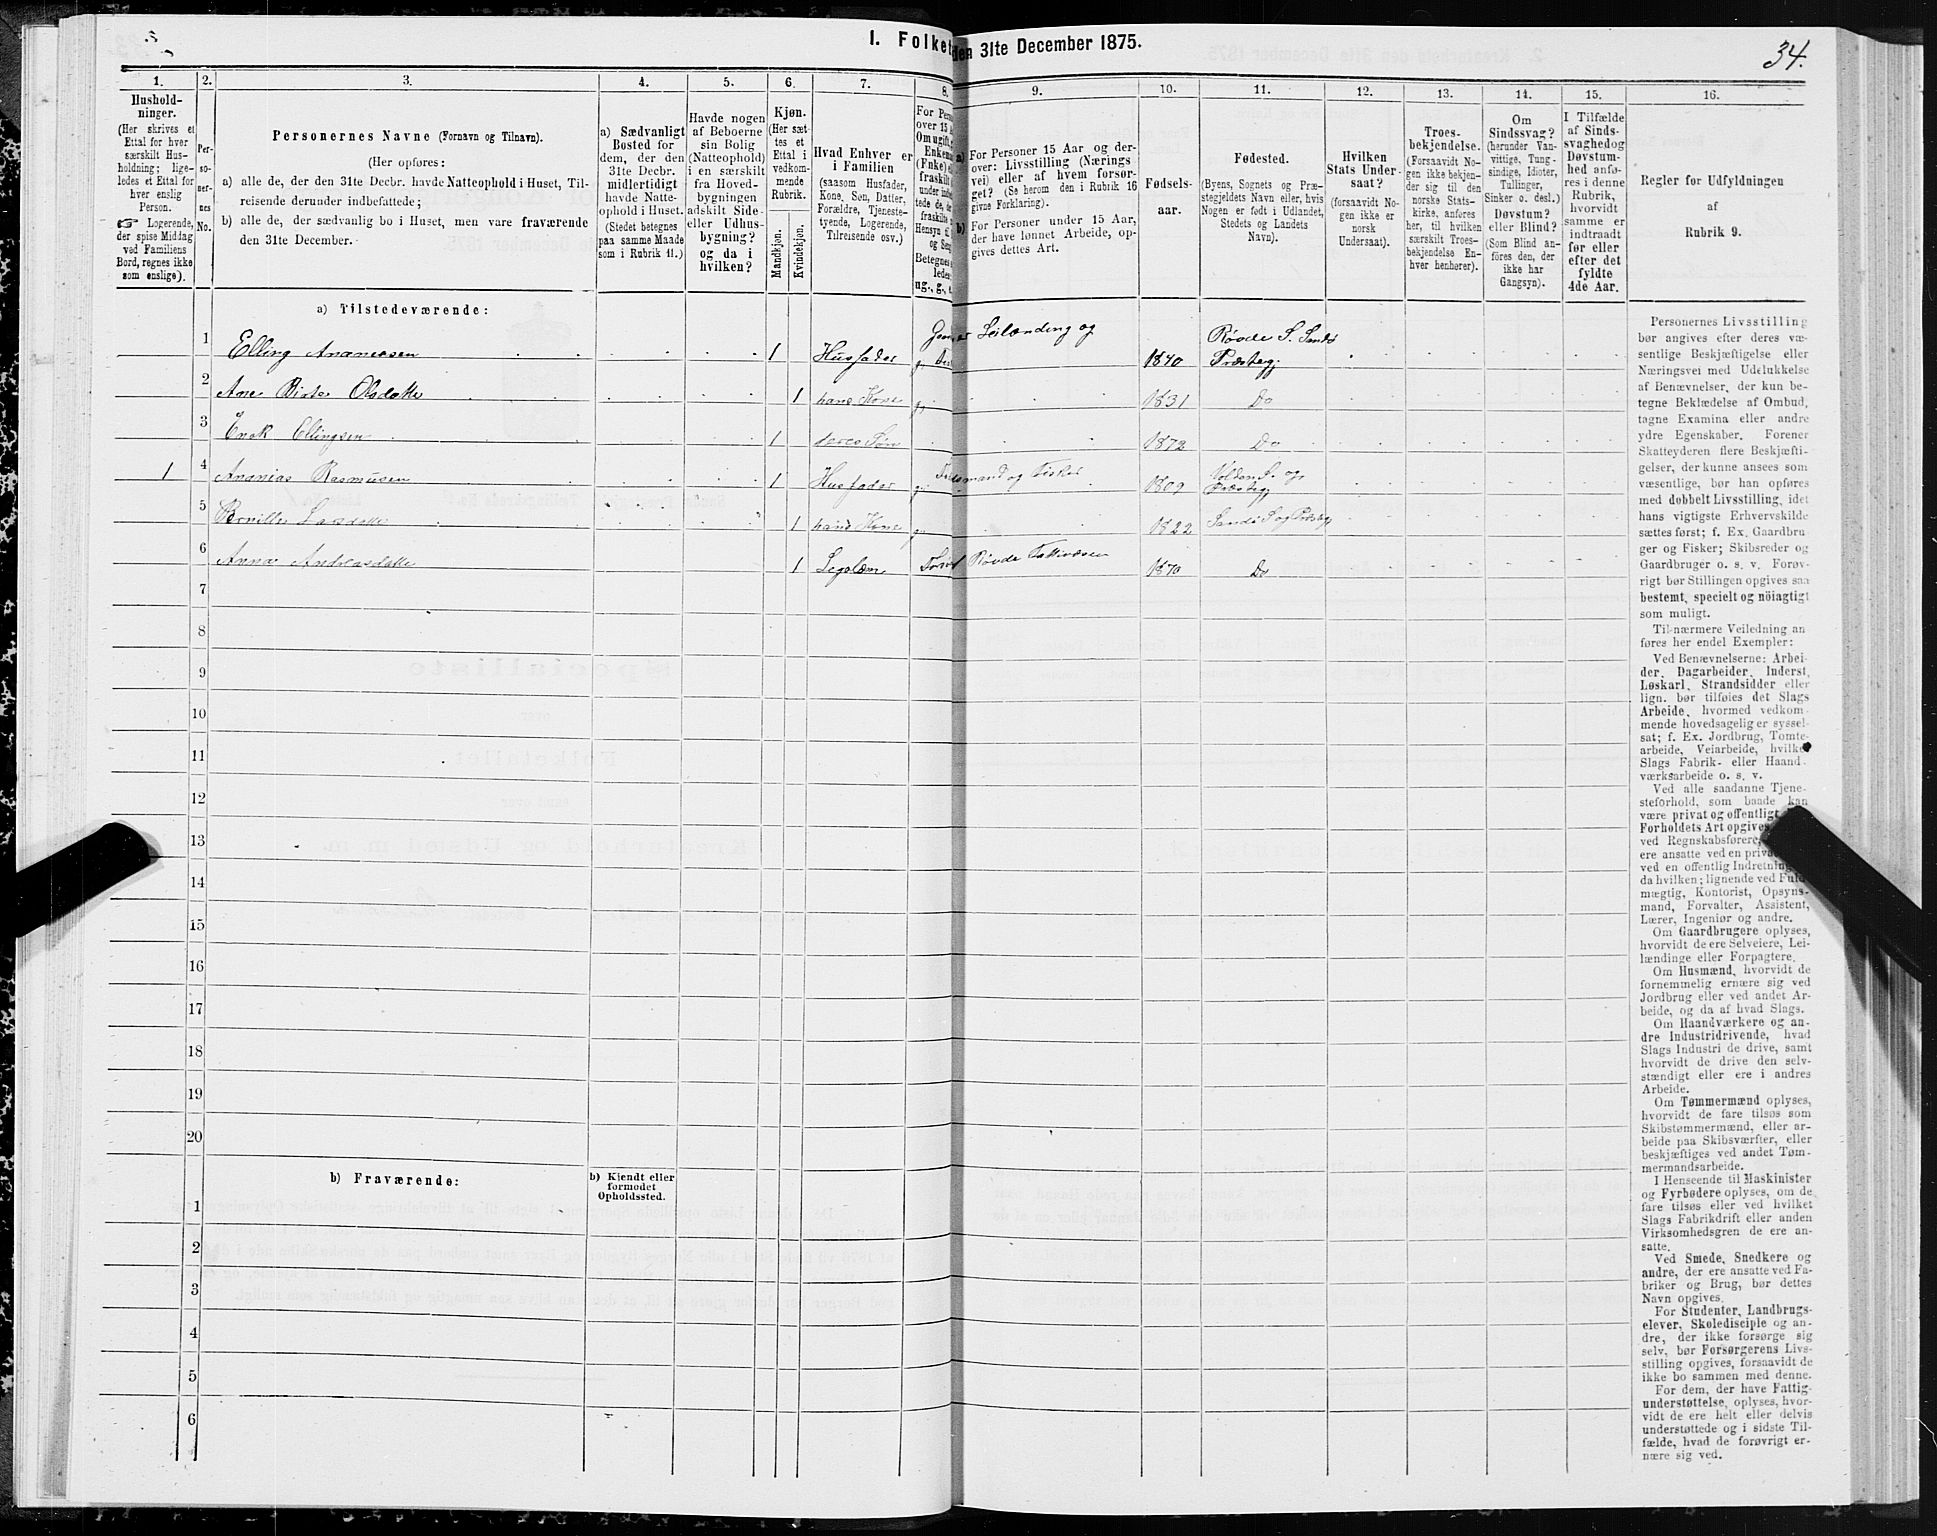 I. Folket den 31te December 1875.
34.
1.
Hushold-
ninger.
(Her skrives et
Ettal for hver
særskilt Hus-
holdning; lige-
ledes et Ettal for
hver enslig
Person.
☞ Logerende,
der spise Middag
ved Familiens
Bord, regnes ikke
som enslige).
2.
Per-
so-
ner-
nes
No.
3.
Personernes Navne (Fornavn og Tilnavn).
(Her opføres:
a) alle de, der den 31te Decbr. havde Natteophold i Huset, Til-
reisende derunder indbefattede;
b) alle de, der sædvanlig bo i Huset, men vare fraværende
den 31te December.
4.
a) Sædvanligt
Bosted for
dem, der den
31te Decbr.
midlertidigt
havde Natte-
ophold i Huset.
(Stedet betegnes
paa samme Maade
som i Rubrik 11.)
5.
Havde nogen
af Beboerne
sin Bolig
(Natteophold)
i en særskilt
fra Hoved-
bygningen
adskilt Side-
eller Udhus-
bygning?
og da i
hvilken?
6.
Kjøn.
(Her sæt-
tes et
Ettal i
vedkom-
mende
Rubrik.
Mandkjøn.
Kvindekjøn.
7.
Hvad Enhver er
i Familien
(saasom Husfader,
Kone, Søn, Datter,
Forældre, Tjeneste-
tyende, Logerende,
Tilreisende osv.)
8.
For Pers
over 15 A
Om ugift,
Enkema
(Enke) e
fraskilt
under indt
tede de, de
fraskilte
Hensyn ti
og Sen
Betegnes
leder
ug., g., e
9.
a) For Personer 15 Aar og der-
over: Livsstilling (Nærings
vei) eller af hvem forsør-
get? (Se herom den i Rubrik 16
givne Forklaring).
b) For Personer under 15 Aar,
der have lønnet Arbeide, op-
gives dettes Art.
10.
Fødsels-
aar.
11.
Fødested.
(Byens, Sognets og Præ-
stegjeldets Navn eller, hvis
Nogen er født i Udlandet,
Stedets og Landets
Navn).
12.
Hvilken
Stats Under-
saat?
(forsaavidt No-
gen ikke er
norsk
Undersaat).
13.
Troes-
bekjendelse.
(Forsaavidt No-
gen ikke bekjen-
der sig til den
norske Stats-
kirke, anføres
her, til hvilken
særskilt Troes-
bekjendelse En-
hver henhører).
14.
Om
Sindssvag?
(herunder Van-
vittige, Tung-
sindige, Idioter,
Tullinger,
Sinker o. desl.)
Døvstum?
eller Blind?
(Som Blind an-
føres den, der
ikke har
Gangsyn).
15.
I Tilfælde
af Sinds-
svaghed og
Døvstum-
hed anfø-
res i denne
Rubrik,
hvorvidt
samme er
indtraadt
før eller
efter det
fyldte
4de Aar.
16.
Regler for Udfyldningen
af
Rubrik 9.
a) Tilstedeværende:
1 Elling Ananiesen 1 Husfader g. Leilænding og 1840 Røvde S. Sandø Præstegj
2 Ane Birte Olsdatte 1 hans Kone g. 1831 Do
3 Enok Ellingsen 1 deres Søn 1872 Do
1 4 Ananias Rasmusen 1 Husfader g. og Fisker 1809 Volden S. og Præstegj
5 Larsdatte 1 hans Kone g. 1822 Sandø S og Præsteg
6 Anna Andreasdatte 1 Legslæm Røvde Fattivæsen 1870 Do
7
8
9
10
11
12
13
14
15
16
17
18
19
20
b) Fraværende:
b) Kjendt eller
formodet
Opholdssted.
1
2
3
4
5
6
Personernes Livsstilling
bør angives efter deres væ-
sentlige Beskjæftigelse eller
Næringsvei med Udelukkelse
af Benævnelser, der kun be-
tegne Beklædelse af Ombud,
tagne Examina eller andre
ydre Egenskaber. Forener
Skatteyderen flere Beskjæfti-
gelser, der kunne ansees som
væsentlige, bør han opføres
med dobbelt Livsstilling, idet
hans vigtigste Erhvervskilde
sættes først; f. Ex. Gaardbru-
ger og Fisker; Skibsreder og
Gaardbruger o. s. v. Forøv-
rigt bør Stillingen opgives saa
bestemt, specielt og nöiagtigt
som muligt.
Til nærmere Veiledning an
føres her endel Exempler:
Ved Benævnelserne: Arbei-
der, Dagarbeider, Inderst,
Løskarl, Strandsidder eller
lign. bør tilføies det Slags
Arbeide, hvormed vedkom-
mende hovedsagelig er syssel-
sat; f. Ex. Jordbrug, Tomte-
arbeide, Veiarbeide, hvilket
Slags Fabrik- eller Haand-
værksarbeide o. s. v.
Ved alle saadanne Tjene-
steforhold, som baade kan
være privat og offentligt,
Forholdets Art opgives,
ved Regnskabsførere,
ere ansatte ved en priva
ved en offentlig Indretning
da hvilken; lignende ved Fuld-
mægtig, Kontorist, Opsyns-
mand, Forvalter, Assistent,
Lærer, Ingeniør og andre.
Om Gaardbrugere oplyses,
hvorvidt de ere Selveiere, Lei-
lændinge eller Forpagtere.
Om Husmænd, hvorvidt de
fornemmelig ernære sig ved
Jordbrug eller ved andet Ar-
beide, og da af hvad Slags.
Om Haandværkere og an-
dre Industridrivende, hvad
Slags Industri de drive, samt
hvorvidt de drive den selv-
stændigt eller ere i andres
Arbeide.
Om Tømmermænd oplyses,
hvorvidt de fare tilsøs som
Skibstømmermænd, eller ar-
beide paa Skibsværfter, eller
beskjæftiges ved andet Tøm-
mermandsarbeide.
I Henseende til Maskinister
og Fyrbødere oplyses, om de
fare tilsøs eller ved hvilket
Slags Fabrikdrift eller anden
Virksomhedsgren de ere an-
satte.
Ved Smede, Snedkere og
andre, der ere ansatte ved Fa-
briker og Brug, bør dettes
Navn opgives.
For Studenter, Landbrugs-
elever, Skoledisciple og an-
dre, der ikke forsørge sig
selv, bør Forsørgerens Livs-
stilling opgives, forsaavidt de
ikke bo sammen med denne.
For dem, der have Fattig-
understøttelse, oplyses, hvor-
vidt de ere helt eller delvis
understøttede og i sidste Til-
fælde, hvad de forøvrigt er-
nære sig ved.